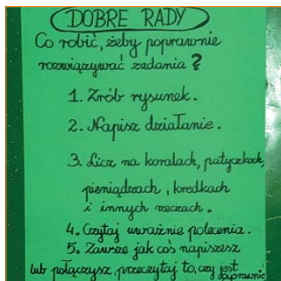 DOBRE RADY
Co robić, żeby poprawnie
rozwiązywać zadania?
1. Zrób rysunek.
2. Napisz działanie.
3. Licz na koralach, patyczkach,
pieniądzach, kredkach
i innych rzeczach.
4. Czytaj uważnie polecenia.
5. Zawsze jak coś napiszesz
lub połączysz, przeczytaj to, czy jest
poprawnie